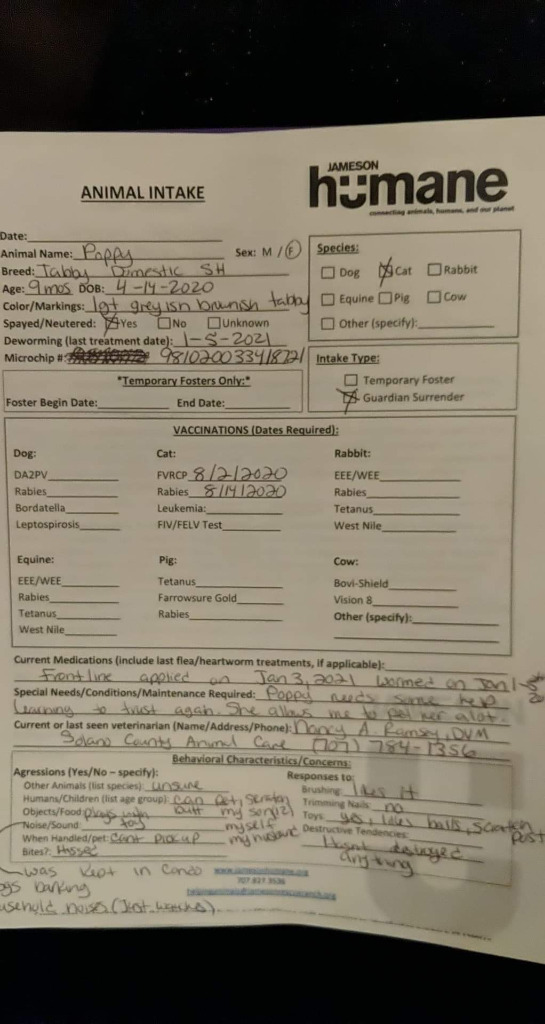 JAMESON
humane
connecting animals, humans, and our planet
ANIMAL INTAKE
Date:
Animal Name: Poppy Sex: M / F
Breed: Tabby Dimestic SH
Age: 9 mos DOB: 4-14-2020
Color/Markings: lgt greyish brownish tabby
Spayed/Neutered: Yes No Unknown
Deworming (last treatment date): 1-5-2021
Microchip #: 981020033418721
Species:
Dog Cat Rabbit
Equine Pig Cow
Other (specify):
Intake Type:
Temporary Foster
Guardian Surrender
*Temporary Fosters Only:*
Foster Begin Date: End Date:
VACCINATIONS (Dates Required):
Dog: Cat: Rabbit:
DA2PV FVRCP 8/2/2020 EEE/WEE
Rabies Rabies 8/14/2020 Rabies
Bordatella Leukemia: Tetanus
Leptospirosis FIV/FELV Test West Nile
Equine: Pig: Cow:
EEE/WEE Tetanus Bovi-Shield
Rabies Farrowsure Gold Vision 8
Tetanus Rabies Other (specify):
West Nile
Current Medications (include last flea/heartworm treatments, if applicable):
Frontline applied on Jan 3, 2021 wormed on Jan 1-5
Special Needs/Conditions/Maintenance Required: Poppy needs some help
learning to trust again. She allows me to pet her alot.
Current or last seen veterinarian (Name/Address/Phone): Nancy A. Ramsey, DVM
Solano County Animal Care (707) 784-1356
Behavioral Characteristics/Concerns:
Agressions (Yes/No – specify): Responses to:
Other Animals (list species): unsure Brushing: likes it
Humans/Children (list age group): can pet, scratch butt my son(12) Trimming Nails: no
Objects/Food: plays with toy myself Toys: yes, likes balls, scratch post
Noise/Sound: my husband Destructive Tendencies:
When Handled/pet: cant pick up Hasnt destroyed
Bites?: Hisses anything
was kept in Condo
www.jamesonhumane.org
707 827 3536
dogs barking
household noises (Just watches)